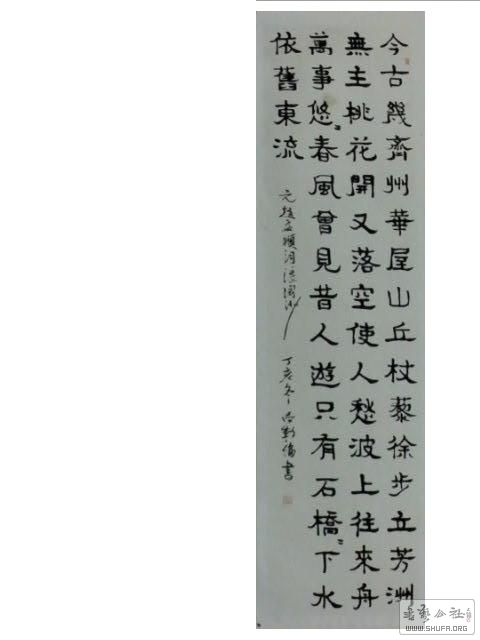 今古幾齊州華屋山丘杖藜徐步立芳洲
無主桃花開又落空使人愁波上往來舟
萬事悠〻春風曾見昔人遊只有石橋〻下水
依舊東流
元趙孟頫詞浪淘沙
丁亥冬 書
書藝公社
WWW.SHUFA.ORG